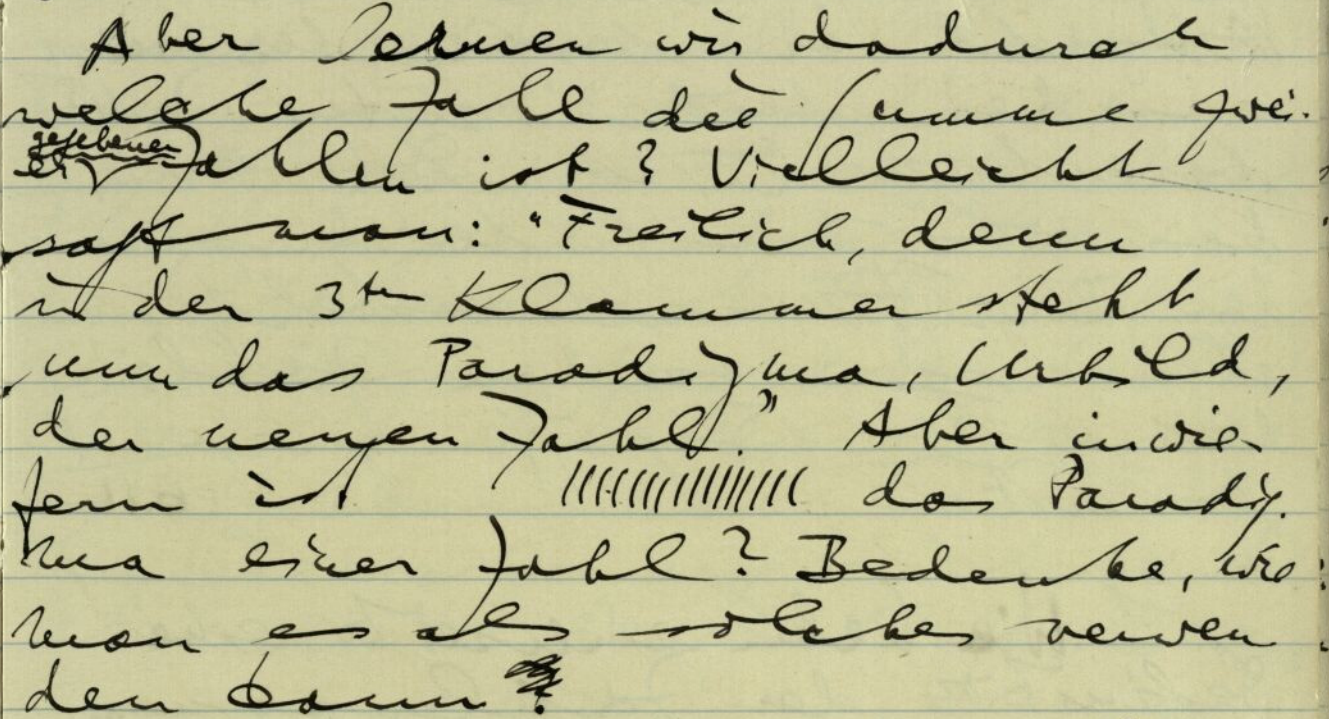 Aber lernen wir dadurch
welche Zahl die Summe zwei-
er gegebener Zahlen ist? Vielleicht
sagt man: "Freilich, denn
in der 3ten Klammer steht
nun das Paradigma, Urbild,
der neuen Zahl." Aber inwie-
fern ist |||||||||||||||| das Paradig-
ma einer Zahl? Bedenke, wie
man es als solches verwen
den kann.